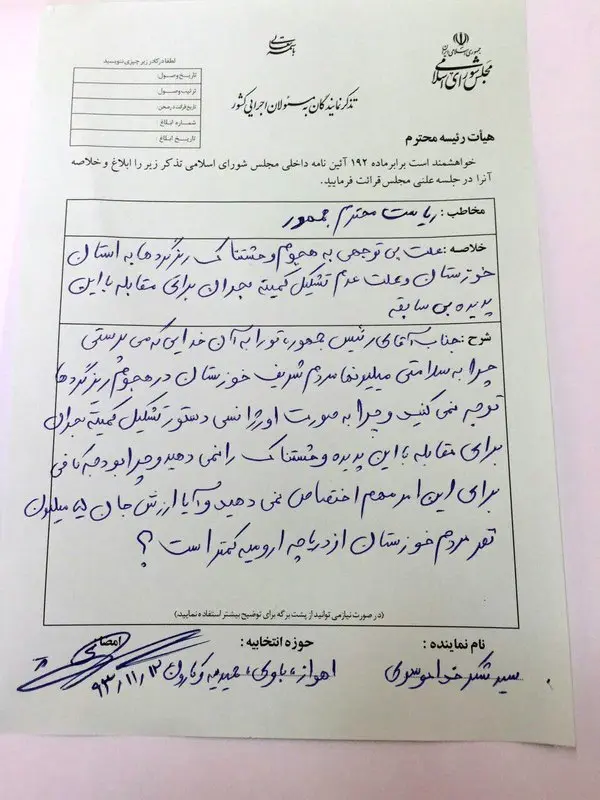 جمهوری اسلامی ایران
مجلس شورای اسلامی
باسمه تعالی
لطفا در کادر زیر چیزی ننویسید
تاریخ وصول:
ترتیب وصول:
تاریخ قرائت در صحن:
شماره ابلاغ:
تاریخ ابلاغ:
تذکر نمایندگان به مسئولان اجرایی کشور
هیأت رئیسه محترم
خواهشمند است برابر ماده ۱۹۲ آئین نامه داخلی مجلس شورای اسلامی تذکر زیر را ابلاغ و خلاصه
آنرا در جلسه علنی مجلس قرائت فرمایید.
مخاطب: ریاست محترم جمهور
خلاصه: علت بی توجهی به هجوم وحشتناک ریزگردها به استان
خوزستان و علت عدم تشکیل کمیته بحران برای مقابله با این
پدیده بی سابقه
شرح: جناب آقای رئیس جمهور، تو را به آن خدایی که می پرستی
چرا به سلامتی میلیونها مردم شریف خوزستان در هجوم ریزگردها
توجه نمی کنید و چرا به صورت اورژانسی دستور تشکیل کمیته بحران
برای مقابله با این پدیده وحشتناک را نمی دهید و چرا بودجه کافی
برای این امر مهم اختصاص نمی دهید و آیا ارزش جان ۵ میلیون
نفر مردم خوزستان از دریاچه ارومیه کمتر است؟
(در صورت نیاز می توانید از پشت برگه برای توضیح بیشتر استفاده نمایید.)
نام نماینده:
حوزه انتخابیه:
امضا
سید شکر خدا موسوی
اهواز، باوی، حمیدیه و کارون
۹۳/۱۱/۱۲